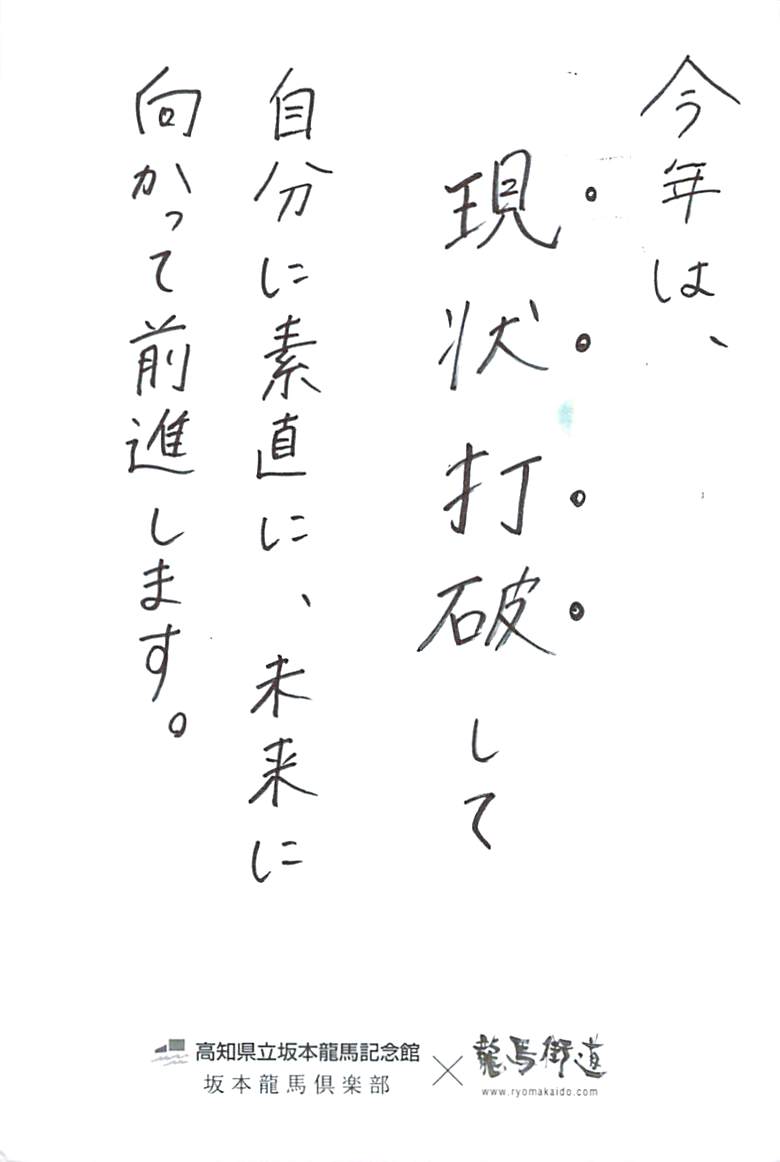 今年は、
現状打破して
自分に素直に、未来に
向かって前進します。
高知県立坂本龍馬記念館
坂本龍馬倶楽部
×
龍馬街道
www.ryomakaido.com